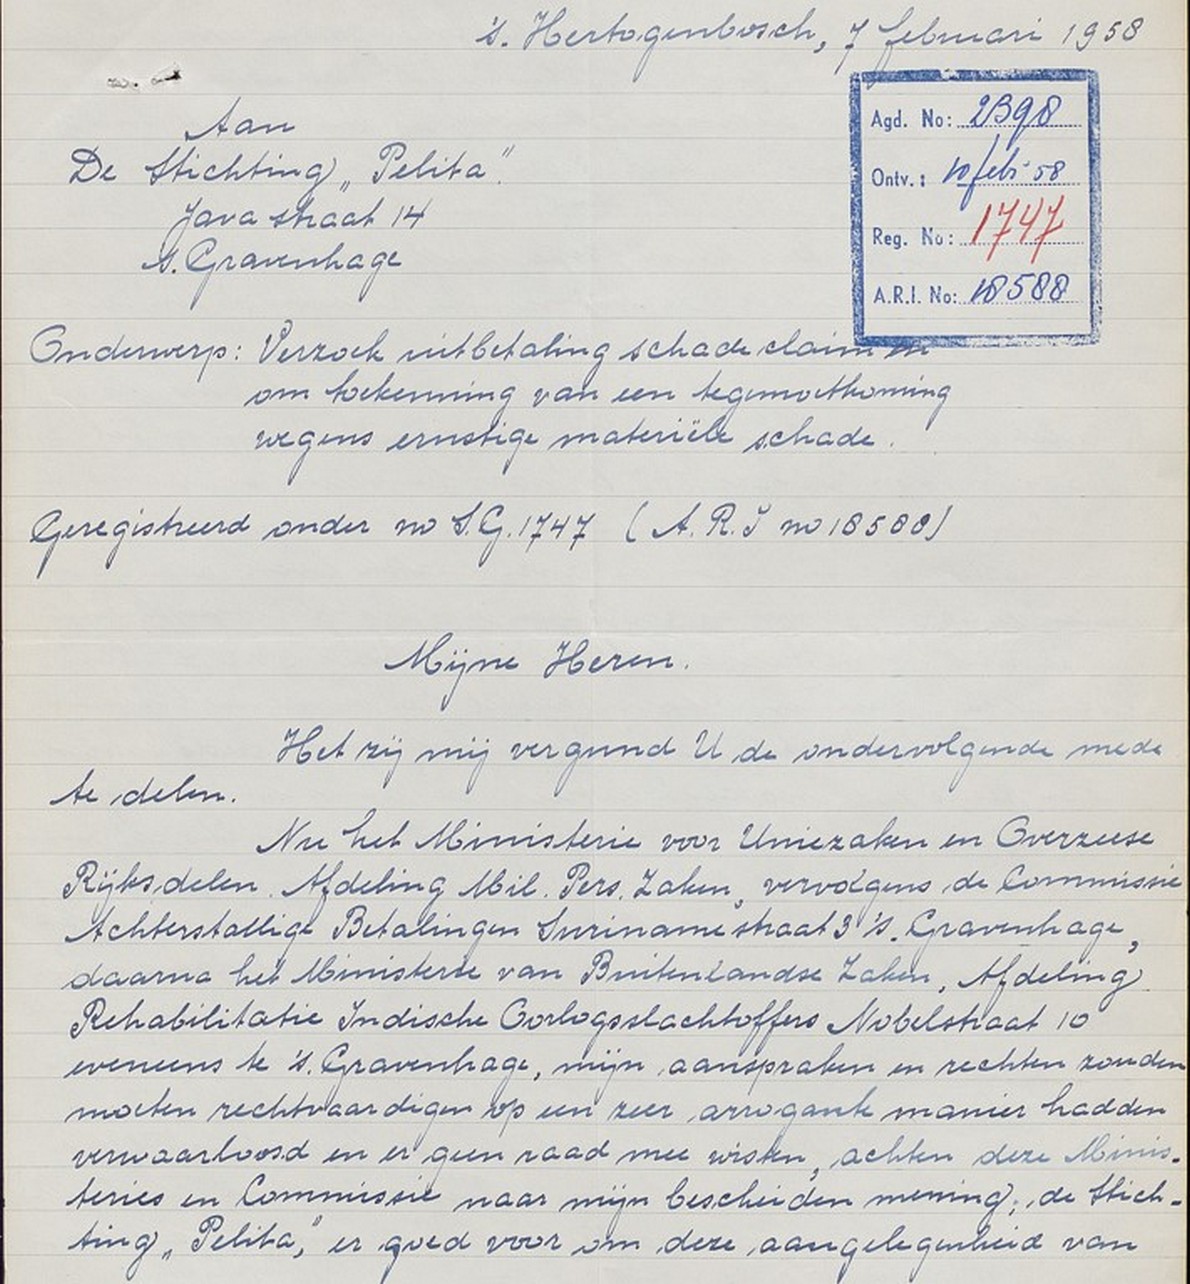 's. Hertogenbosch, 7 februari 1958
Agd. No: 2398
Ontv.: 10 feb 58
Reg. No: 1747
A.R.I. No: 18588
Aan
De Stichting „Pelita".
Javastraat 14
's. Gravenhage
Onderwerp: Verzoek uitbetaling schade claim en
om toekenning van een tegemoetkoming
wegens ernstige materiële schade.
Geregistreerd onder no S.G. 1747 (A.R.I no 18588)
Mijne Heren.
Het zij mij vergund U de ondervolgende mede
te delen.
Nu het Ministerie voor Uniezaken en Overzeese
Rijksdelen. Afdeling Mil. Pers. Zaken, vervolgens de Commissie
Achterstallige Betalingen Surinamestraat 3 's. Gravenhage,
daarna het Ministerie van Buitenlandse Zaken, Afdeling
Rehabilitatie Indische Oorlogsslachtoffers Nobelstraat 10
eveneens te 's. Gravenhage, mijn aanspraken en rechten zouden
moeten rechtvaardigen op een zeer arrogante manier hadden
verwaarloosd en er geen raad mee wisten, achten deze Minis-
teries en Commissie naar mijn bescheiden mening, de Stich-
ting „Pelita," er goed voor om deze aangelegenheid van